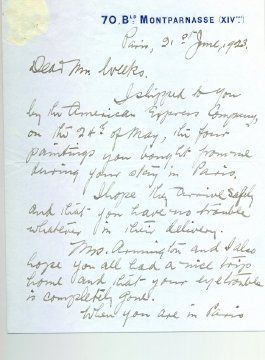 70, Bᴸᴰ MONTPARNASSE (XIVᵐᵉ)
Paris, 21st June, 1923.
Dear Mr. Weeks.
I shipped to you
by the American Express Company,
on the 24th of May, the four
paintings you bought from me
during your stay in Paris.
I hope they arrive safely
and that you have no trouble
whatever in their delivery.
Mrs. Armington and I also
hope you all had a nice trip
home and that your eye trouble
is completely gone.
When you are in Paris